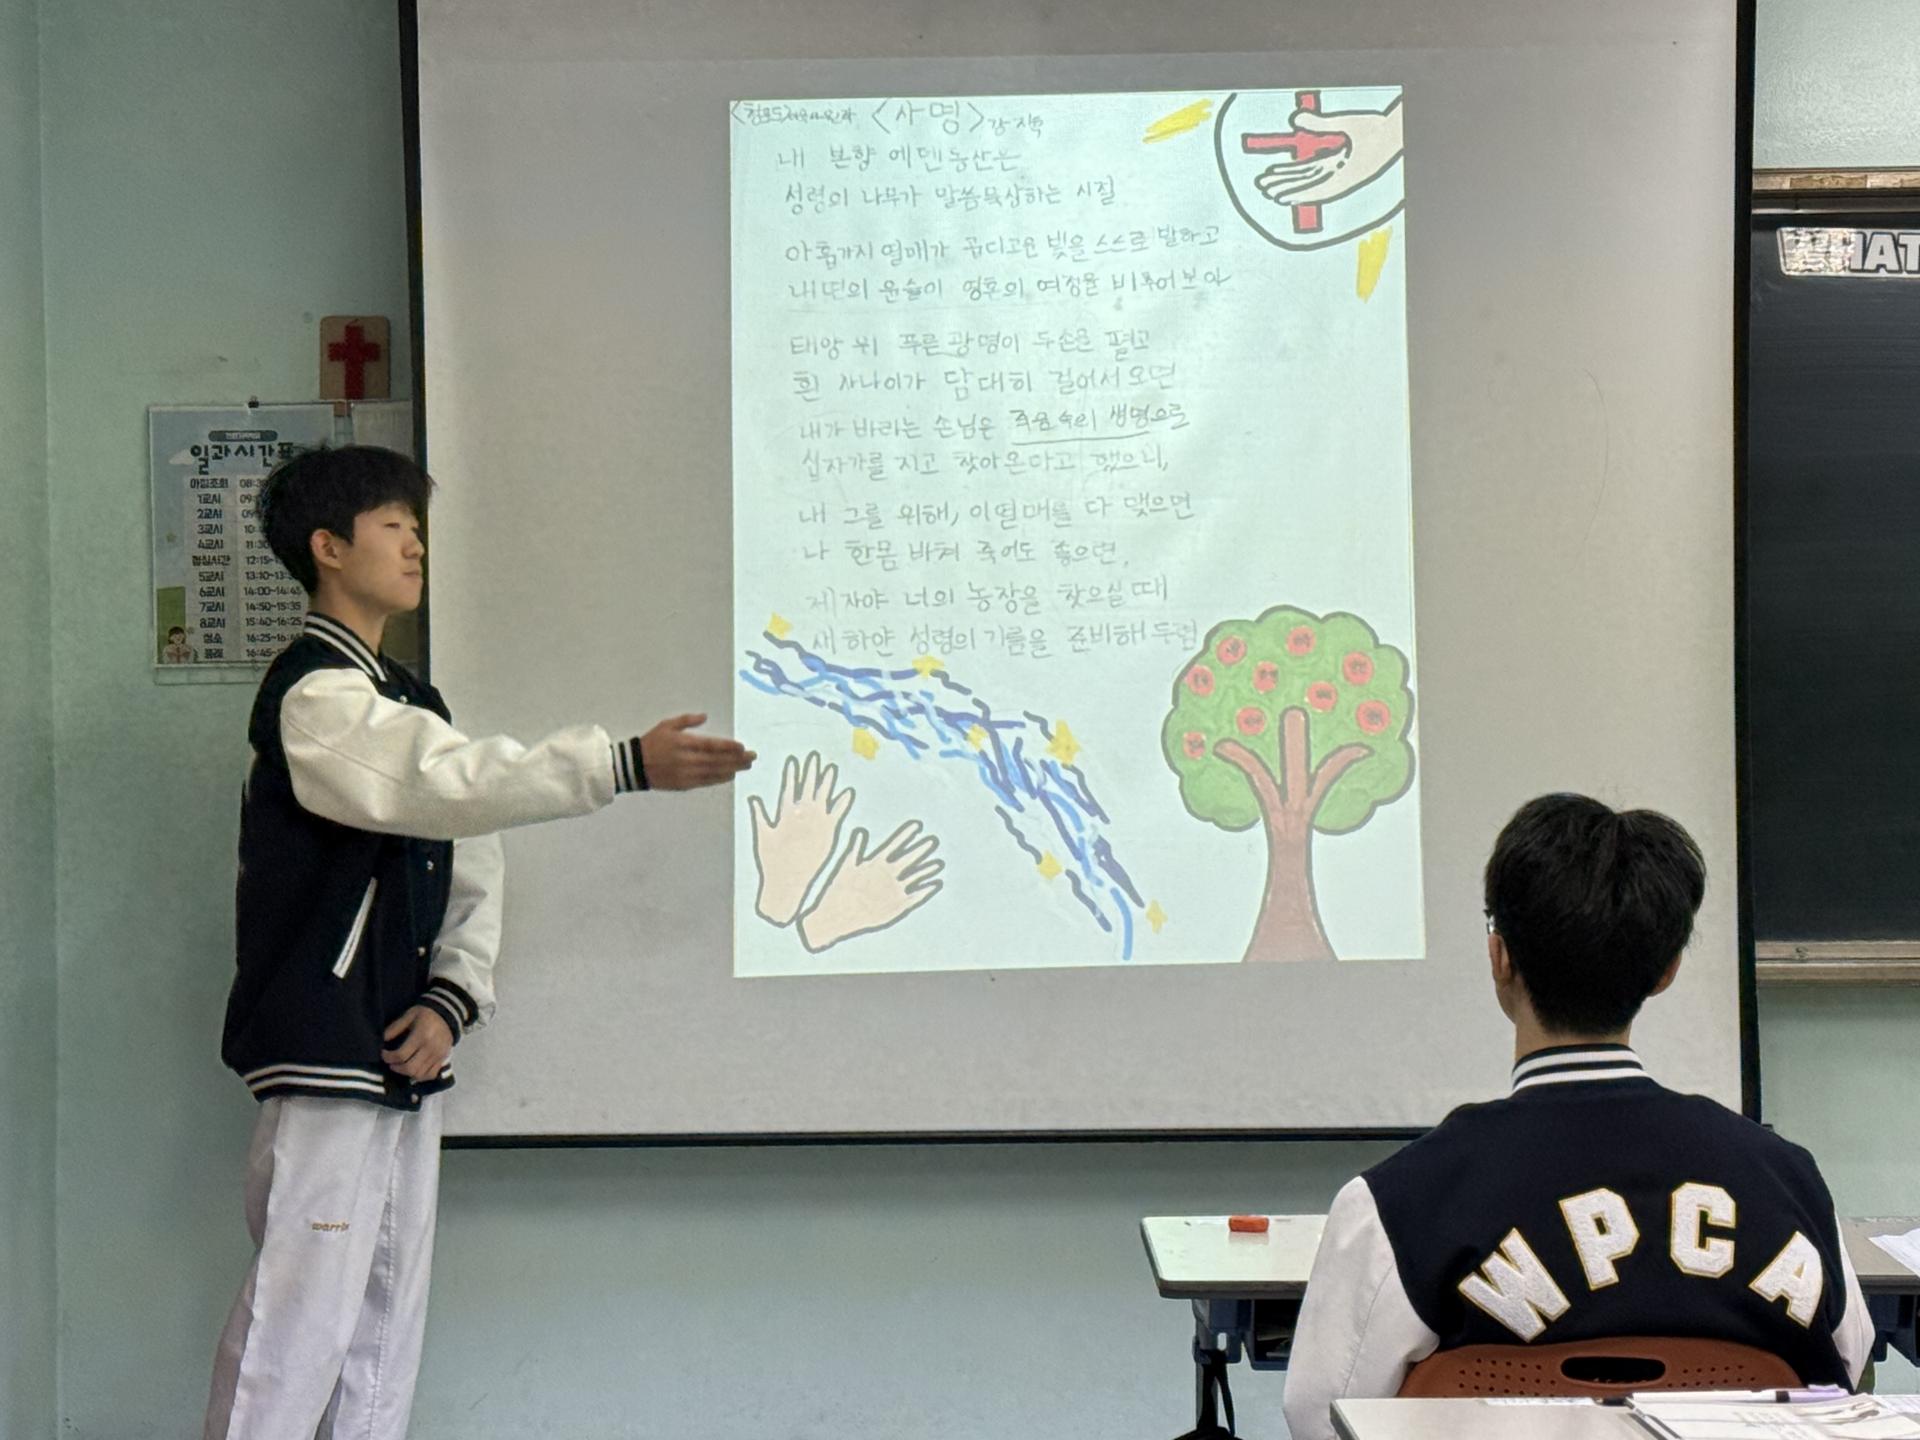 <사명>
내 본향 에덴동산은
성령의 나무가 말씀묵상하는 시절
아홉가지 열매가 곱디고운 빛을 스스로 발하고
내면의 윤슬이 영혼의 여정을 비추어 보아
태양 위 푸른 광명이 두손을 펼고
흰 사나이가 담대히 걸어서 오면
내가 바라는 손님은 죽음 속의 생명으로
십자가를 지고 찾아온다고 했으니,
내 그를 위해, 이 열매를 다 맺으면
나 한몸 바쳐 죽어도 좋으련,
제자야 너의 농장을 찾으실 때
새하얀 성령의 기름을 준비해 두렴
일과시간표
아침조회 08:3
1교시 09:
2교시 09
3교시 10:
4교시 11:30
점심시간 12:15~1
5교시 13:10~13:5
6교시 14:00~14:45
7교시 14:50~15:35
8교시 15:40~16:25
청소 16:25~16:4
종례 16:45~
HAT
WPCA